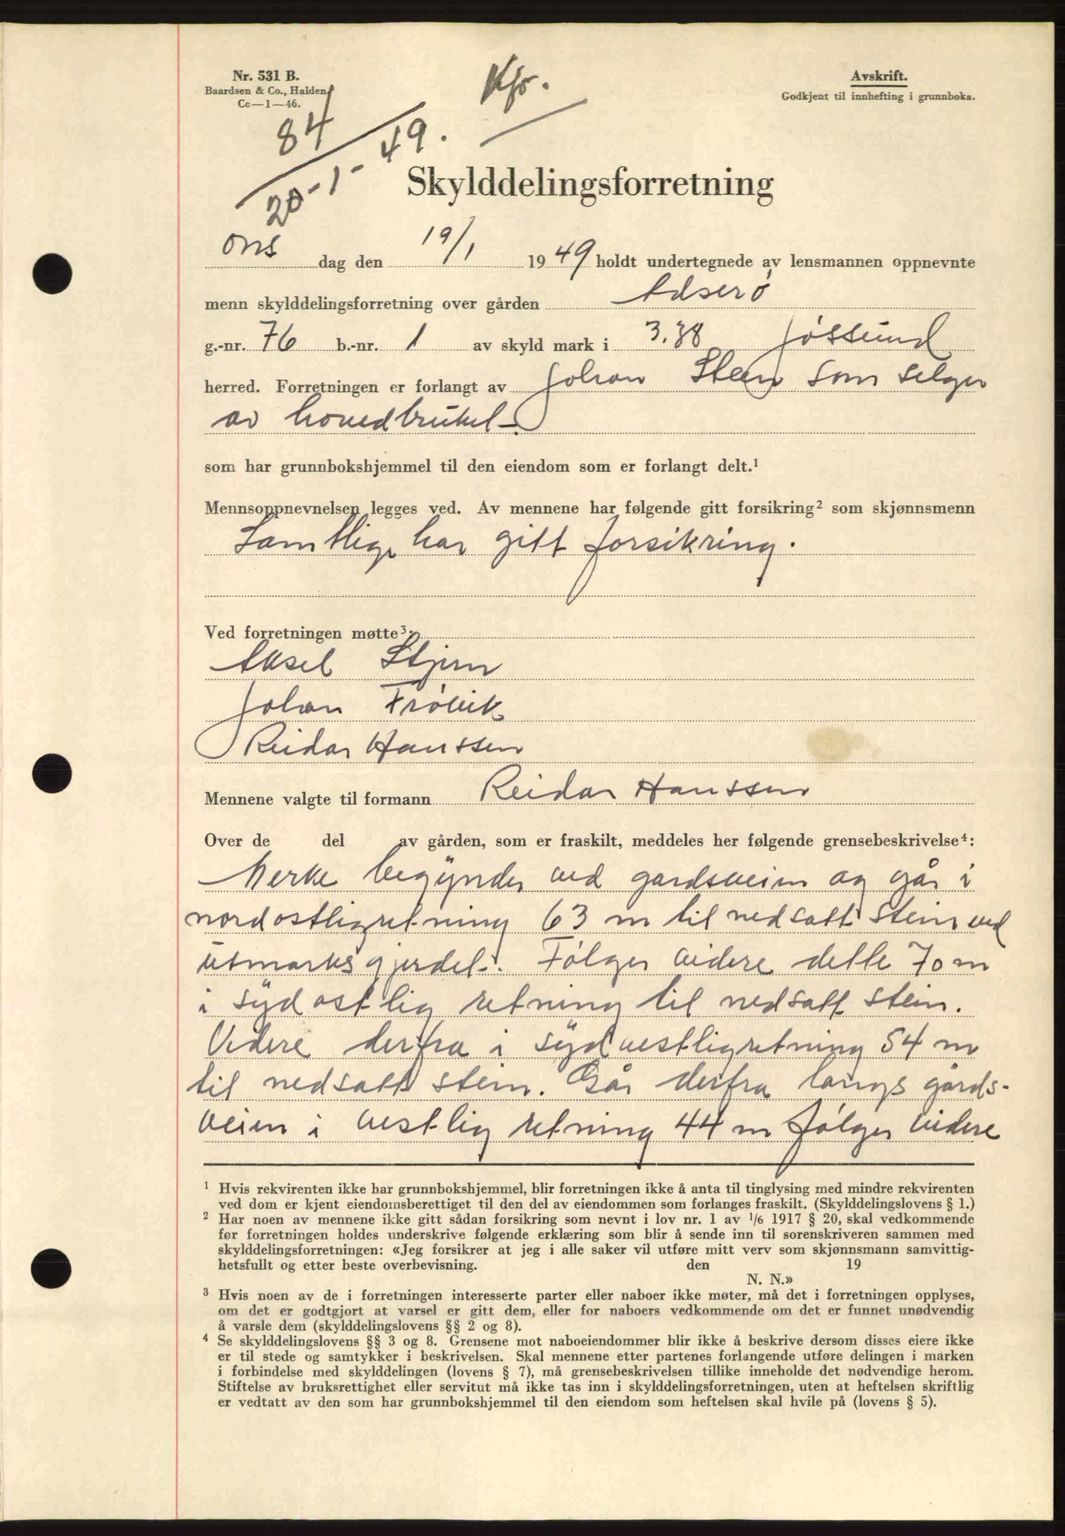 Nr. 531 B.
Baardsen & Co., Halden
Cc—1—46.
Kfr.
Avskrift.
Godkjent til innhefting i grunnboka.
84
20-1-49.
Skylddelingsforretning
ons dag den 19/1 1949 holdt undertegnede av lensmannen oppnevnte
menn skylddelingsforretning over gården Adserø
g.-nr. 76 b.-nr. 1 av skyld mark i 3.38 Jøssund
herred. Forretningen er forlangt av Johan Stein som selger
av hovedbruket.
som har grunnbokshjemmel til den eiendom som er forlangt delt.¹
Mennsoppnevnelsen legges ved. Av mennene har følgende gitt forsikring² som skjønnsmenn
Samtlige har gitt forsikring.
Ved forretningen møtte³:
Aksel Stjern
Johan Frøvik
Reidar Hanssen
Mennene valgte til formann Reidar Hanssen
Over de del av gården, som er fraskilt, meddeles her følgende grensebeskrivelse⁴:
Merke begynder ved gardsveien og går i
nordostlig retning 63 m til nedsatt stein ved
utmarksgjerdet. Følger videre dette 70 m
i sydostlig retning til nedsatt stein.
Videre derfra i sydvestlig retning 54 m
til nedsatt stein. Går derfra langs gårds-
veien i vestlig retning 44 m følger videre
¹ Hvis rekvirenten ikke har grunnbokshjemmel, blir forretningen ikke å anta til tinglysing med mindre rekvirenten
ved dom er kjent eiendomsberettiget til den del av eiendommen som forlanges fraskilt. (Skylddelingslovens § 1.)
² Har noen av mennene ikke gitt sådan forsikring som nevnt i lov nr. 1 av 1/6 1917 § 20, skal vedkommende
før forretningen holdes underskrive følgende erklæring som blir å sende inn til sorenskriveren sammen med
skylddelingsforretningen: «Jeg forsikrer at jeg i alle saker vil utføre mitt verv som skjønnsmann samvittig-
hetsfullt og etter beste overbevisning. den 19
N. N.»
³ Hvis noen av de i forretningen interesserte parter eller naboer ikke møter, må det i forretningen opplyses,
om det er godtgjort at varsel er gitt dem, eller for naboers vedkommende om det er funnet unødvendig
å varsle dem (skylddelingslovens §§ 2 og 8).
⁴ Se skylddelingslovens §§ 3 og 8. Grensene mot naboeiendommer blir ikke å beskrive dersom disses eiere ikke
er til stede og samtykker i beskrivelsen. Skal mennene etter partenes forlangende utføre delingen i marken
i forbindelse med skylddelingen (lovens § 7), må grensebeskrivelsen tillike inneholde det nødvendige herom.
Stiftelse av bruksrettighet eller servitut må ikke tas inn i skylddelingsforretningen, uten at heftelsen skriftlig
er vedtatt av den som har grunnbokshjemmel til den eiendom som heftelsen skal hvile på (lovens § 5).